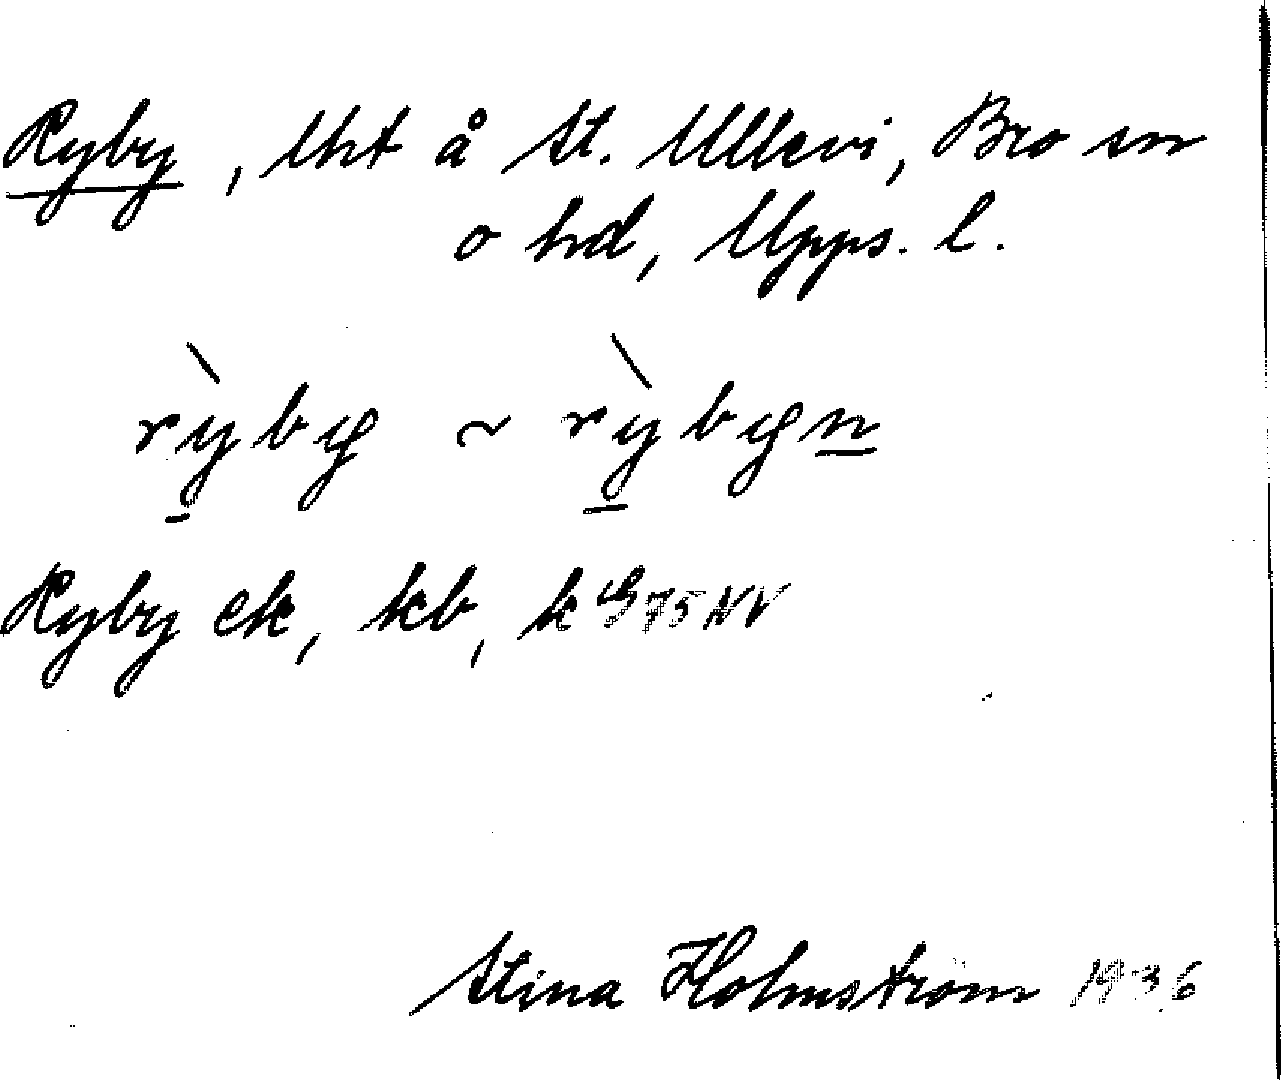 Ryby, lht å St. Ullevi, Bro sn
o hd, Upps. l.
rỳby ~ rỳbyn
Ryby ek, kb, k G 75 NV
Stina Holmström 1936